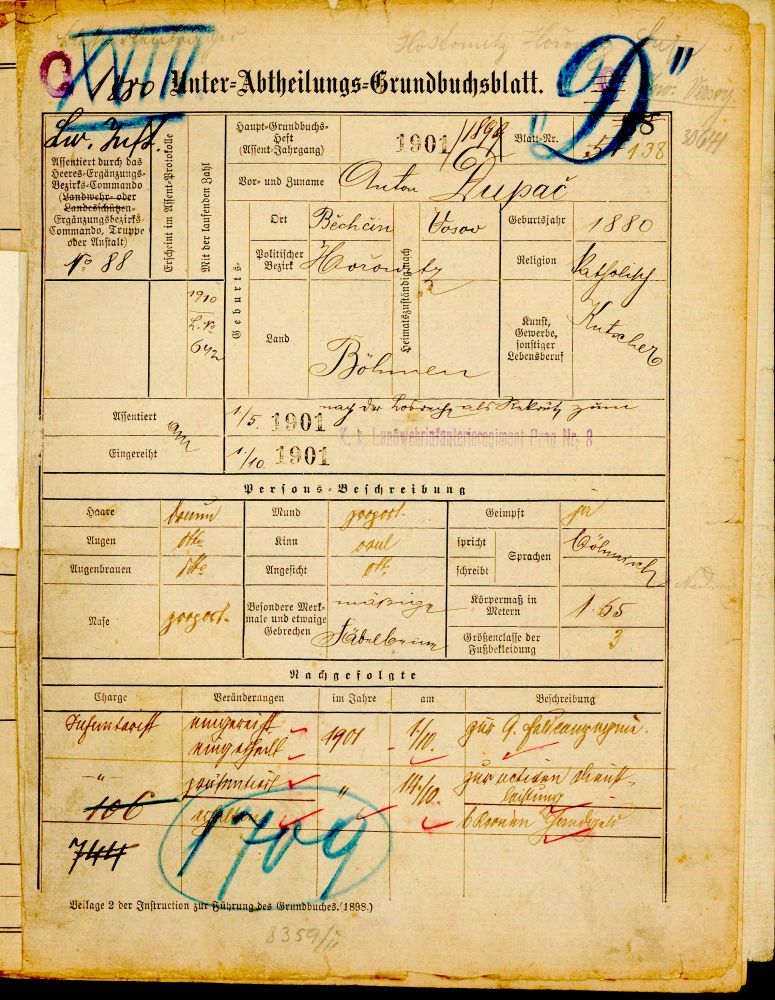 Hostomitz
XVIII
1880
Unter-Abtheilungs-Grundbuchsblatt.
"D"
39641
Lw. Inft.
Assentiert durch das
Heeres-Ergänzungs-
Bezirks-Commando
(Landwehr- oder
Landesschützen-
Ergänzungsbezirks-
Commando, Truppe
oder Anstalt)
No 88
Erscheint im Assent-Protokolle
Mit der laufenden Zahl
1910
642
Haupt-Grundbuchs-
Heft
(Assent-Jahrgang)
1901/1899
Blatt-Nr.
138
Vor- und Zuname
Anton Dupač
Geburts-
Ort
Běchčin
Heimatszuständig nach
Vosov
Geburtsjahr
1880
Politischer
Bezirk
Hořowitz
Religion
Katholisch
Land
Böhmen
Kunst,
Gewerbe,
sonstiger
Lebensberuf
Kutscher
Assentiert
am
1/5. 1901
nach der Losreihe als Rekrut zum
K. k. Landwehrinfanterieregiment Prag Nr. 8
Eingereiht
1/10. 1901
Persons-Beschreibung
Haare
braun
Mund
proport.
Geimpft
ja
Augen
dtto
Kinn
oval
spricht
schreibt
Sprachen
böhmisch
Augenbrauen
dtto
Angesicht
dtto
Nase
proport.
Besondere Merk-
male und etwaige
Gebrechen
mäßige
Säbelbeine
Körpermaß in
Metern
1.65
Größenclasse der
Fußbekleidung
3
Nachgefolgte
Charge
Veränderungen
im Jahre
am
Beschreibung
Infanterist
eingereiht
eingetheilt
1901
1/10.
zur 9. Feldcompagnie.
-"-
präsentiert
"
14/10.
zur activen Dienst-
leistung
106
erhalten
6 Kronen Handgeld
744
1709
Beilage 2 der Instruction zur Führung des Grundbuches. (1898.)
8359/II